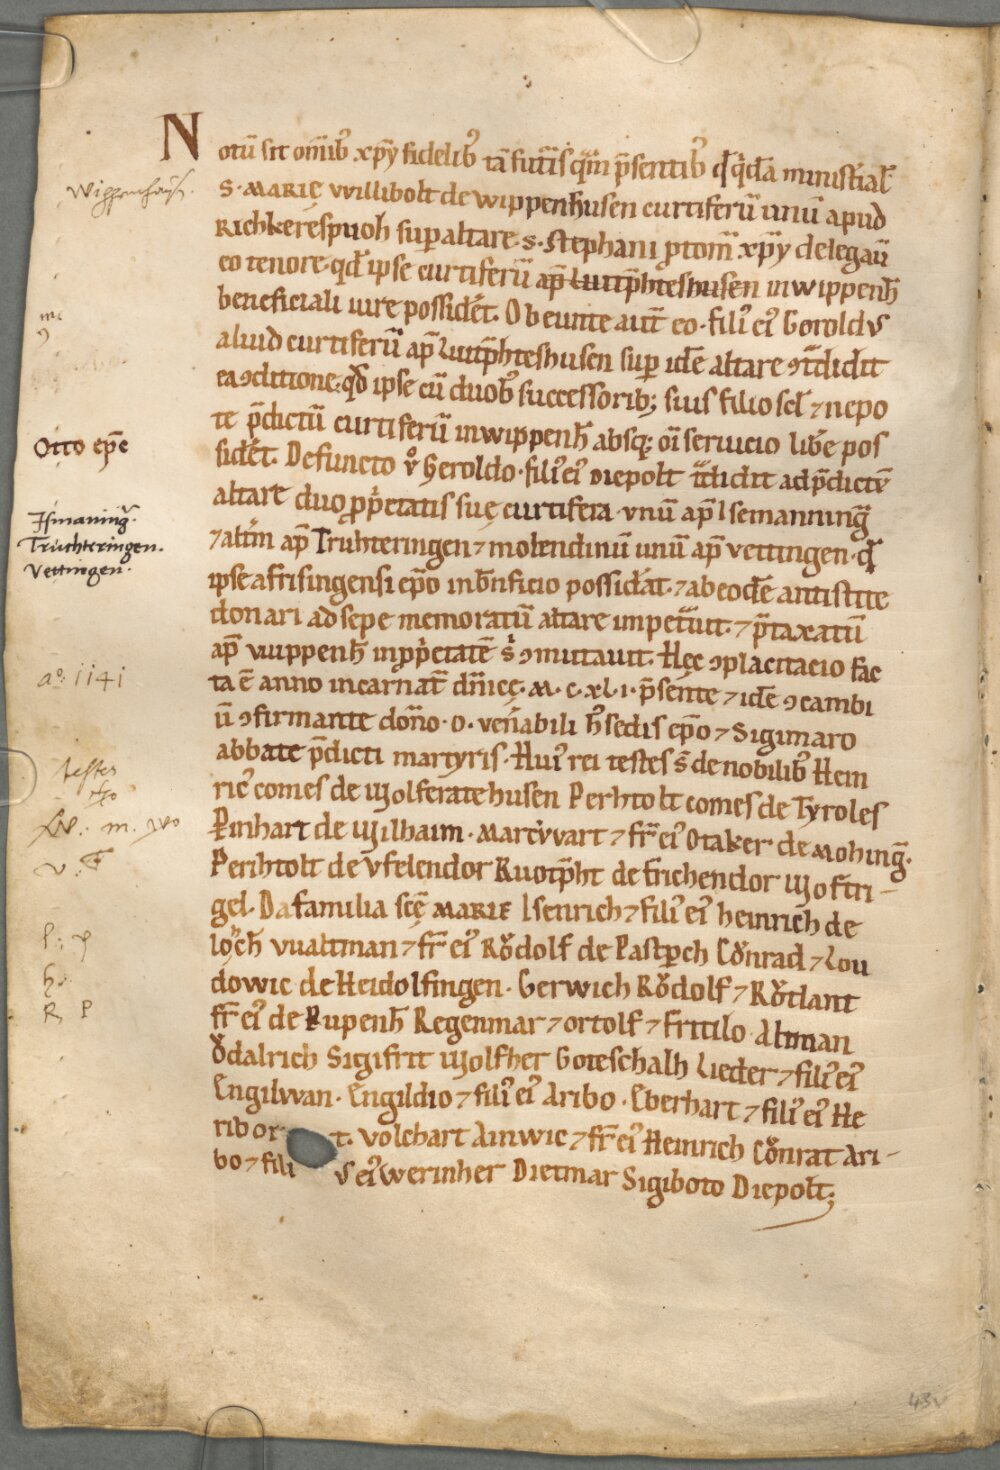 Notū sit om̄ib᷒ xp̄y fidelib᷒ tā futuris quā p̄sentib᷒ qđ qidā ministial̄
S. MARIĘ vvillibolt de wippenhusen curtiferū unū apud
Richkerespuoh sup altare. S. Stephani ꝓtom̄ xp̄y delegauit
eo tenore. qđ ipse curtiferū ap̄ Luitp̄hteshusen inwippenh̄
beneficiali iure possideret. Obeunte aut̄ eo. fili᷒ ei᷒ Gerolđus
aliud curtiferū ap̄ Luitp̄hteshusen sup idē altare ꝯtradidit
ea ꝯditione. qđ ipse cū duob᷒ successorib; suis filio scl̄ ⁊ nepo
te p̄dictū curtiferū inwippenh̄ absq; oī seruicio libe pos
sideret. Defuncto v̊ Geroldo. fili᷒ ei᷒ Diepolt tradidit ad p̄dictū
altare duo ꝓprietatis suę curtifera. unū ap̄ Isemanning̃
⁊ altm̄ ap̄ Truhteringen ⁊ molendinū unū ap̄ Vettingen. qđ
ipse a frisingensi ep̄o in bn̄ficio possiderat. ⁊ ab eodē antistite
donari ad sepe memoratū altare impetrauit. ⁊ p̄taxatū
ap̄ vvippenh̄ in ꝓprietatē s̄ ꝯmutauit. Hęc ꝯplacitacio fac
ta ē anno incarnat̄ dn̄icę. M. C. XL. I. p̄sente ⁊ idē ꝯcambi
ū ꝯfirmante dom̄o. O. ven̄abili h᷒ sedis ep̄o ⁊ Sigimaro
abbate p̄dicti martyris. Hui᷒ rei testes s̄ de nobilib᷒ Hein
ric᷒ comes de Wolferatehusen Perhtolt comes de Tyroles
Pinhart de Wilhaim. Marcvvart ⁊ fr̄ ei᷒ Otaker de Mohing̃.
Perihtolt de Vfelendor Ruotp̄ht de Erichendor Woftri-
gel. Da familia scę̄ MARIE Isenrich ⁊ fili᷒ ei᷒ heinrich de
Loch̄ vualtman ⁊ fr̄ ei᷒ Rǒdolf de Pastperch Cǒnrad ⁊ Lou
dowic de Heidolfingen. Gerwich Rǒdolf ⁊ Rǒtlant
fr̄ ei᷒ de Rupenh̄ Regenmar ⁊ ortolf ⁊ Fritilo. Altman
Ǒdalrich Sigifrit Wolfher Goteschalh Lieder ⁊ fili᷒ ei᷒
Engilwan. Engildio ⁊ fili᷒ ei᷒ Aribo. Eberhart ⁊ fili᷒ ei᷒ He
ribor t. Volchart Ainwic ⁊ fr̄ ei᷒ Heinrich Cǒnrat Ari-
bo ⁊ fili us ei᷒ Werinher Dietmar Sigiboto Diepolt;
Wippenhaus̃.
Otto ep̄e
Ismaning̃.
Truchteringen.
Vettingen.
aᵒ. 1141
testes
43v